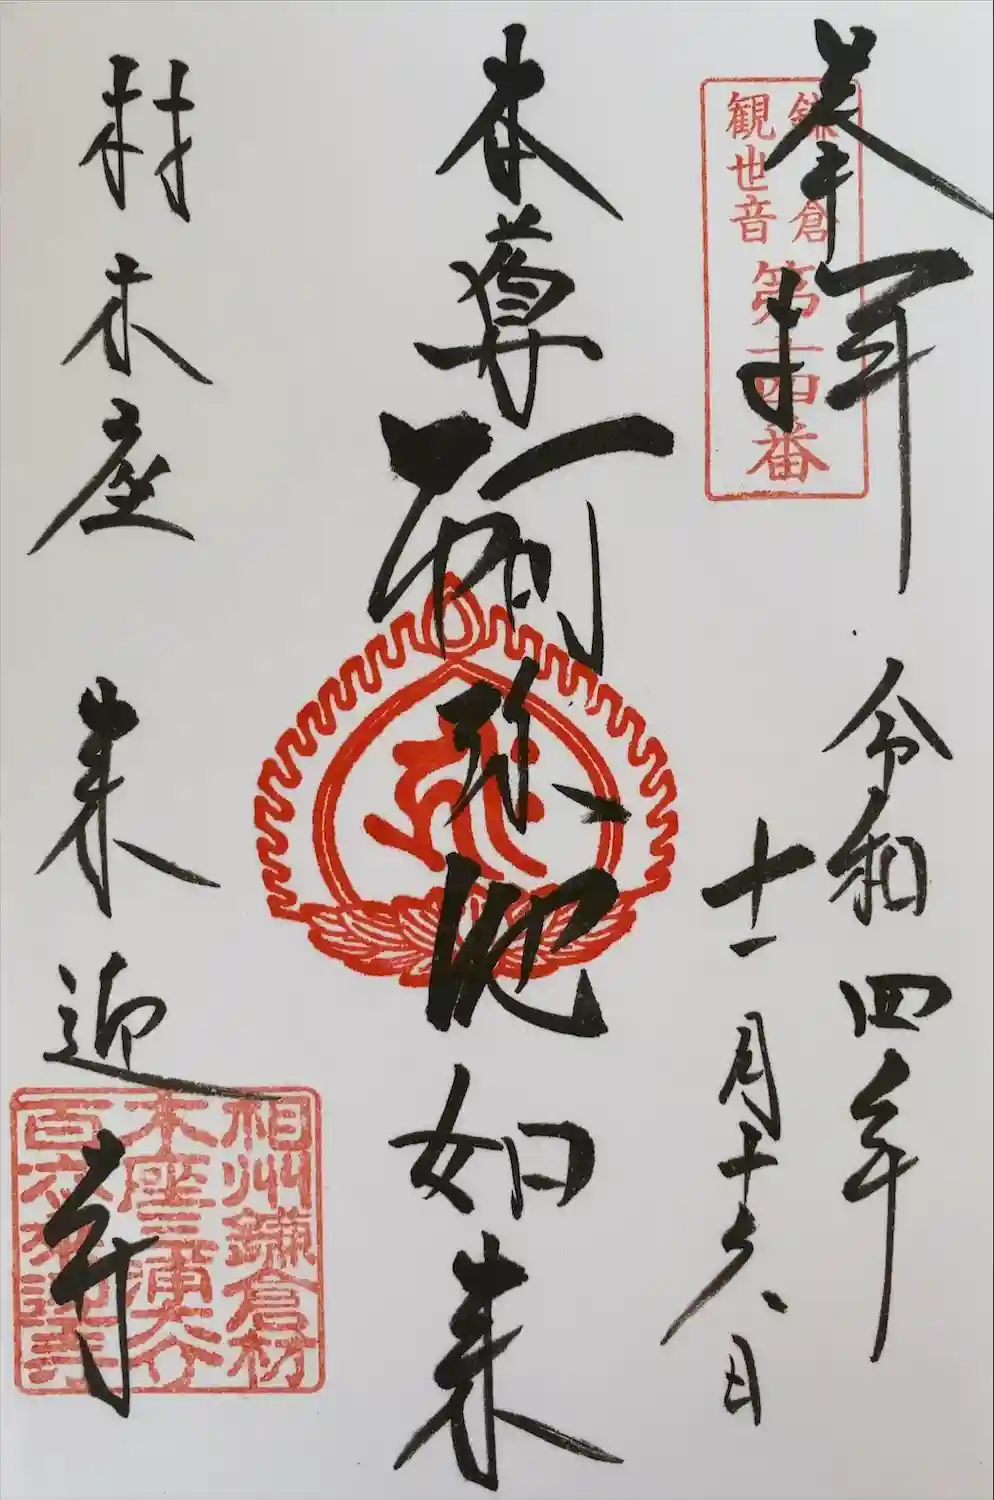 奉拝
鎌倉
観世音
第十四番
令和四年
十一月十六日
本尊 阿弥陀如来
材木座 来迎寺
相州鎌倉材
木座三浦大介